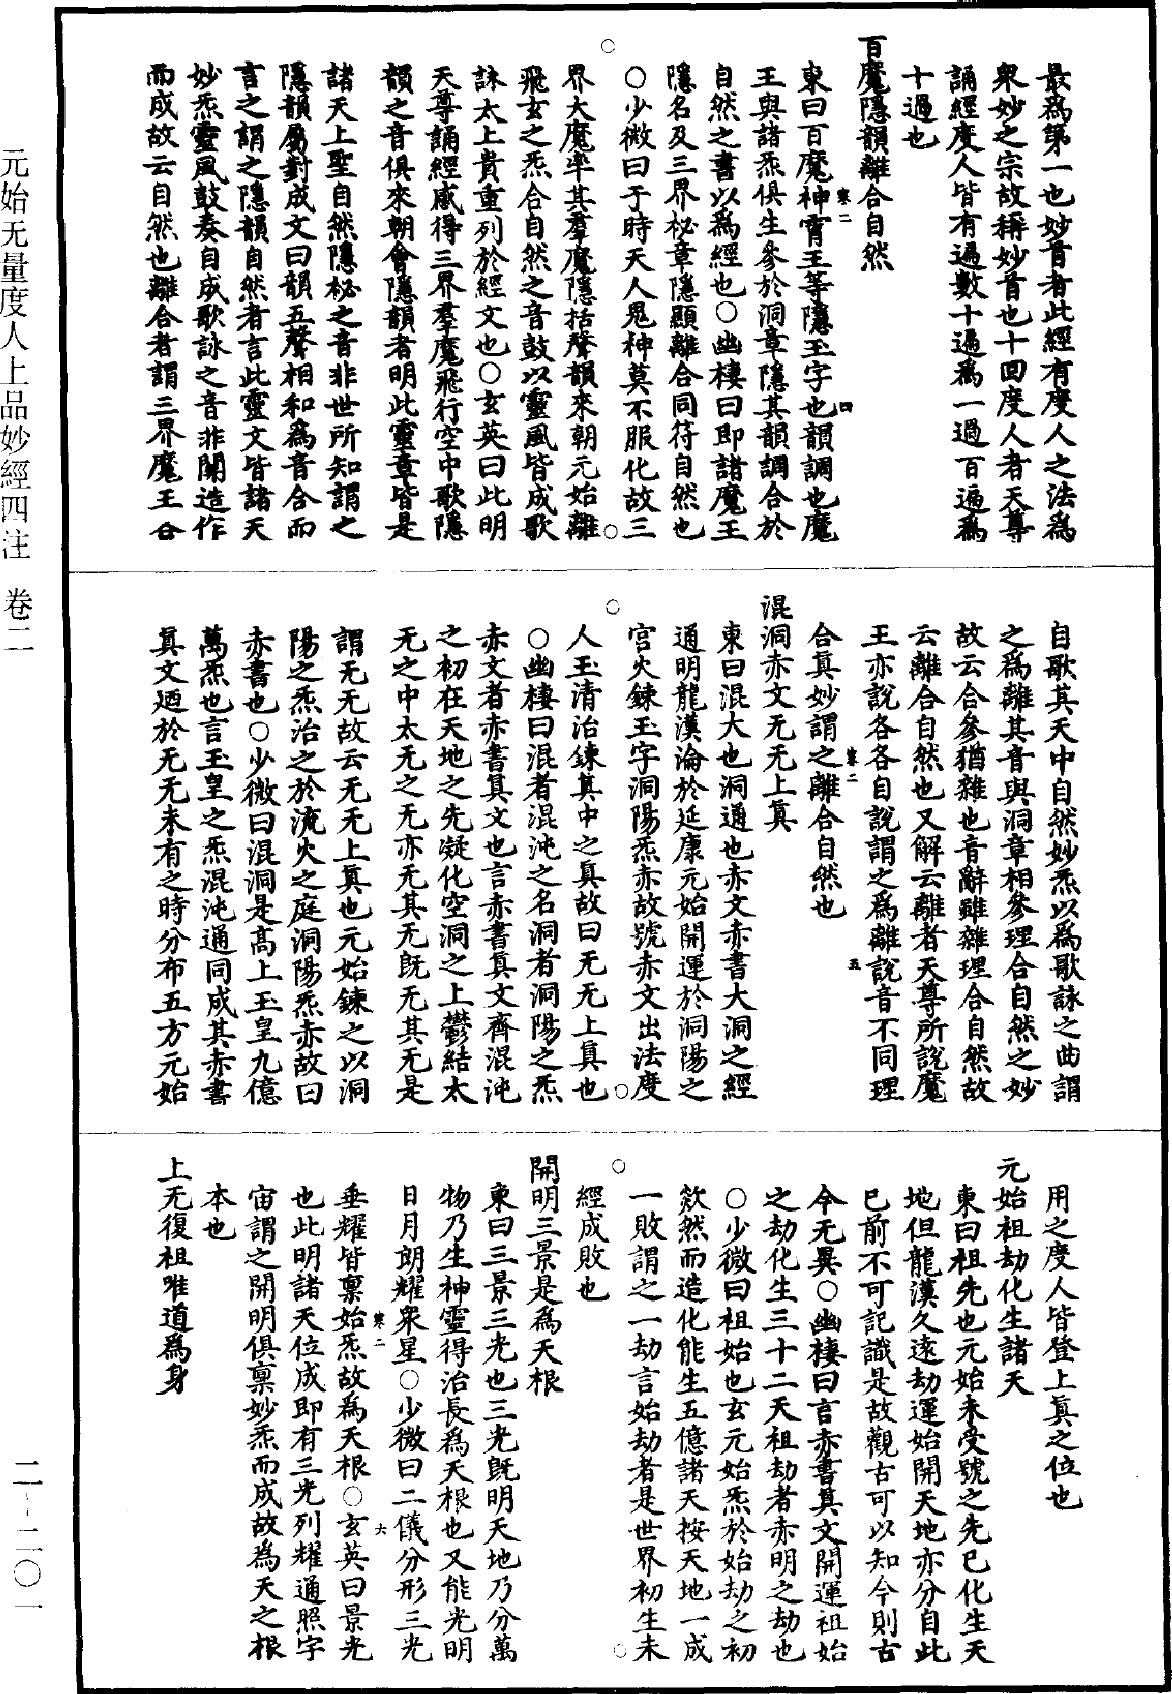 最爲第一也妙首者此經有度人之法爲
衆妙之宗故稱妙首也十回度人者天尊
誦經度人皆有遍數十遍爲一過百遍爲
十過也
百魔隱韻離合自然
東曰百魔神霄王等隱玉字也韻調也魔
卷二
四
王與諸炁俱生參於洞章隱其韻調合於
自然之書以爲經也○幽棲曰即諸魔王
隱名及三界秘章隱顯離合同符自然也
○少微曰于時天人鬼神莫不服化故三
界大魔率其羣魔隱括聲韻來朝元始離
飛玄之炁合自然之音鼓以靈風皆成歌
詠太上貴重列於經文也○玄英曰此明
天尊誦經感得三界羣魔飛行空中歌隱
韻之音俱來朝會隱韻者明此靈章皆是
諸天上聖自然隱秘之音非世所知謂之
隱韻屬對成文曰韻五聲相和爲音合而
言之謂之隱韻自然者言此靈文皆諸天
妙炁靈風鼓奏自成歌詠之音非關造作
而成故云自然也離合者謂三界魔王合
自歌其天中自然妙炁以爲歌詠之曲謂
之爲離其音與洞章相參理合自然之妙
故云合參猶雜也音辭雖雜理合自然故
云離合自然也又解云離者天尊所說魔
王亦說各各自說謂之爲離說音不同理
五
合眞妙謂之離合自然也
卷二
混洞赤文无无上眞
東曰混大也洞通也赤文赤書大洞之經
通明龍漢淪於延康元始開運於洞陽之
宮火鍊玉字洞陽炁赤故號赤文出法度
人玉清治鍊眞中之眞故曰无无上眞也
○幽棲曰混者混沌之名洞者洞陽之炁
赤文者赤書眞文也言赤書眞文齊混沌
之初在天地之先凝化空洞之上鬱結太
无之中太无之无亦无其无旣无其无是
謂无无故云无无上眞也元始鍊之以洞
陽之炁治之於流火之庭洞陽炁赤故曰
赤書也○少微曰混洞是高上玉皇九億
萬炁也言玉皇之炁混沌通同成其赤書
眞文廼於无无未有之時分布五方元始
用之度人皆登上眞之位也
元始祖劫化生諸天
東曰祖先也元始未受號之先已化生天
地但龍漢久遠劫運始開天地亦分自此
已前不可記識是故觀古可以知今則古
今无異○幽棲曰言赤書眞文開運祖始
之劫化生三十二天祖劫者赤明之劫也
○少微曰祖始也玄元始炁於始劫之初
欻然而造化能生五億諸天按天地一成
一敗謂之一劫言始劫者是世界初生未
經成敗也
開明三景是爲天根
東曰三景三光也三光旣明天地乃分萬
物乃生神靈得治長爲天根也又能光明
日月朗耀衆星○少微曰二儀分形三光
卷二
六
垂耀皆稟始炁故爲天根○玄英曰景光
也此明諸天位成即有三光列耀通照宇
宙謂之開明俱稟妙炁而成故爲天之根
本也
上无復祖唯道爲身
元始无量度人上品妙經四注 卷二
二－二〇一